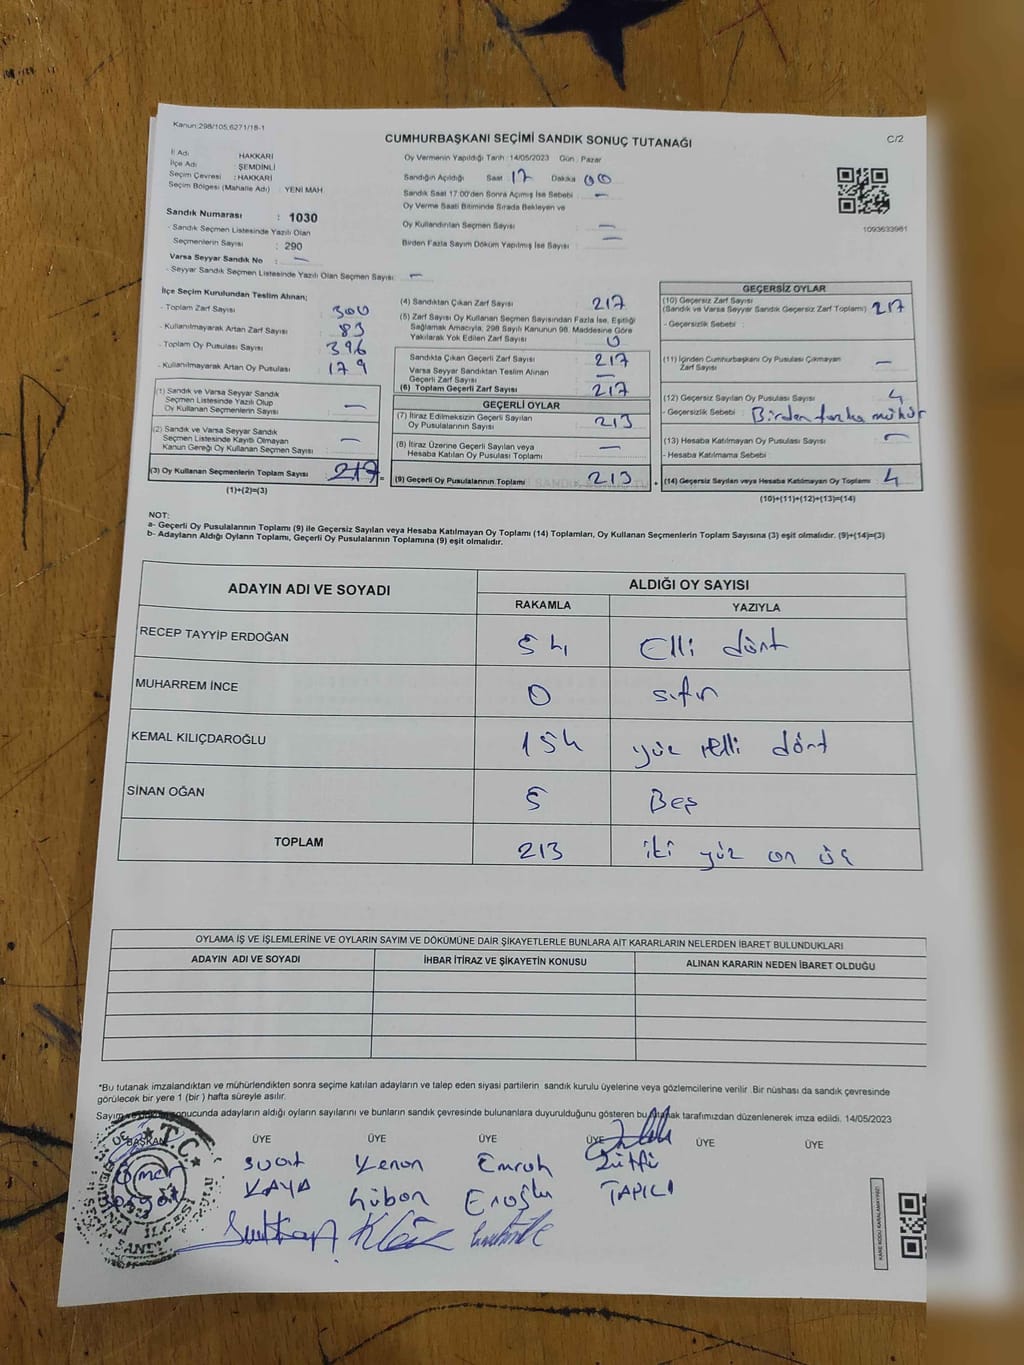 Kanun:298/105;6271/18-1
CUMHURBAŞKANI SEÇİMİ SANDIK SONUÇ TUTANAĞI
C/2
İl Adı : HAKKARİ
İlçe Adı : ŞEMDİNLİ
Seçim Çevresi : HAKKARİ
Seçim Bölgesi (Mahalle Adı) : YENİ MAH
Sandık Numarası : 1030
- Sandık Seçmen Listesinde Yazılı Olan
Seçmenlerin Sayısı : 290
Varsa Seyyar Sandık No : —
- Seyyar Sandık Seçmen Listesinde Yazılı Olan Seçmen Sayısı: —
Oy Vermenin Yapıldığı Tarih : 14/05/2023 Gün : Pazar
Sandığın Açıldığı Saat 17 Dakika 00
Sandık Saat 17.00'den Sonra Açılmış İse Sebebi : —
Oy Verme Saati Bitiminde Sırada Bekleyen ve
Oy Kullandırılan Seçmen Sayısı : —
Birden Fazla Sayım Döküm Yapılmış İse Sayısı : —
1093633961
İlçe Seçim Kurulundan Teslim Alınan;
- Toplam Zarf Sayısı : 300
- Kullanılmayarak Artan Zarf Sayısı : 83
- Toplam Oy Pusulası Sayısı : 396
- Kullanılmayarak Artan Oy Pusulası : 179
(1) Sandık ve Varsa Seyyar Sandık
Seçmen Listesinde Yazılı Olup
Oy Kullanan Seçmenlerin Sayısı : —
(2) Sandık ve Varsa Seyyar Sandık
Seçmen Listesinde Kayıtlı Olmayan
Kanun Gereği Oy Kullanan Seçmen Sayısı : —
(3) Oy Kullanan Seçmenlerin Toplam Sayısı : 217
(1)+(2)=(3)
(4) Sandıktan Çıkan Zarf Sayısı : 217
(5) Zarf Sayısı Oy Kullanan Seçmen Sayısından Fazla İse, Eşitliği
Sağlamak Amacıyla, 298 Sayılı Kanunun 98. Maddesine Göre
Yakılarak Yok Edilen Zarf Sayısı : 0
Sandıkta Çıkan Geçerli Zarf Sayısı : 217
Varsa Seyyar Sandıktan Teslim Alınan
Geçerli Zarf Sayısı : —
(6) Toplam Geçerli Zarf Sayısı : 217
GEÇERLİ OYLAR
(7) İtiraz Edilmeksizin Geçerli Sayılan
Oy Pusulalarının Sayısı : 213
(8) İtiraz Üzerine Geçerli Sayılan veya
Hesaba Katılan Oy Pusulası Toplamı : —
(9) Geçerli Oy Pusulalarının Toplamı : 213
GEÇERSİZ OYLAR
(10) Geçersiz Zarf Sayısı
(Sandık ve Varsa Seyyar Sandık Geçersiz Zarf Toplamı) : 217
- Geçersizlik Sebebi :
(11) İçinden Cumhurbaşkanı Oy Pusulası Çıkmayan
Zarf Sayısı : —
(12) Geçersiz Sayılan Oy Pusulası Sayısı : 4
- Geçersizlik Sebebi : Birden fazla mühür
(13) Hesaba Katılmayan Oy Pusulası Sayısı : —
- Hesaba Katılmama Sebebi
(14) Geçersiz Sayılan veya Hesaba Katılmayan Oy Toplamı : 4
(10)+(11)+(12)+(13)=(14)
NOT:
a- Geçerli Oy Pusulalarının Toplamı (9) ile Geçersiz Sayılan veya Hesaba Katılmayan Oy Toplamı (14) Toplamları, Oy Kullanan Seçmenlerin Toplam Sayısına (3) eşit olmalıdır. (9)+(14)=(3)
b- Adayların Aldığı Oyların Toplamı, Geçerli Oy Pusulalarının Toplamına (9) eşit olmalıdır.
ADAYIN ADI VE SOYADI ALDIĞI OY SAYISI
RAKAMLA YAZIYLA
RECEP TAYYİP ERDOĞAN 54 Elli dört
MUHARREM İNCE 0 sıfır
KEMAL KILIÇDAROĞLU 154 yüz elli dört
SİNAN OĞAN 5 Beş
TOPLAM 213 iki yüz on üç
OYLAMA İŞ VE İŞLEMLERİNE VE OYLARIN SAYIM VE DÖKÜMÜNE DAİR ŞİKAYETLERLE BUNLARA AİT KARARLARIN NELERDEN İBARET BULUNDUKLARI
ADAYIN ADI VE SOYADI İHBAR İTİRAZ VE ŞİKAYETİN KONUSU ALINAN KARARIN NEDEN İBARET OLDUĞU
*Bu tutanak imzalandıktan ve mühürlendikten sonra seçime katılan adayların ve talep eden siyasi partilerin sandık kurulu üyelerine veya gözlemcilerine verilir .Bir nüshası da sandık çevresinde
görülecek bir yere 1 (bir ) hafta süreyle asılır.
Sayım ve sonucunda adayların aldığı oyların sayılarını ve bunların sandık çevresinde bulunanlara duyurulduğunu gösteren bu tutanak tarafımızdan düzenlenerek imza edildi. 14/05/2023
BAŞKAN ÜYE ÜYE ÜYE ÜYE ÜYE ÜYE
Ömer Suat Kenan Emrah Lütfi
KAYA Eroğlu TAPICI
T.C.